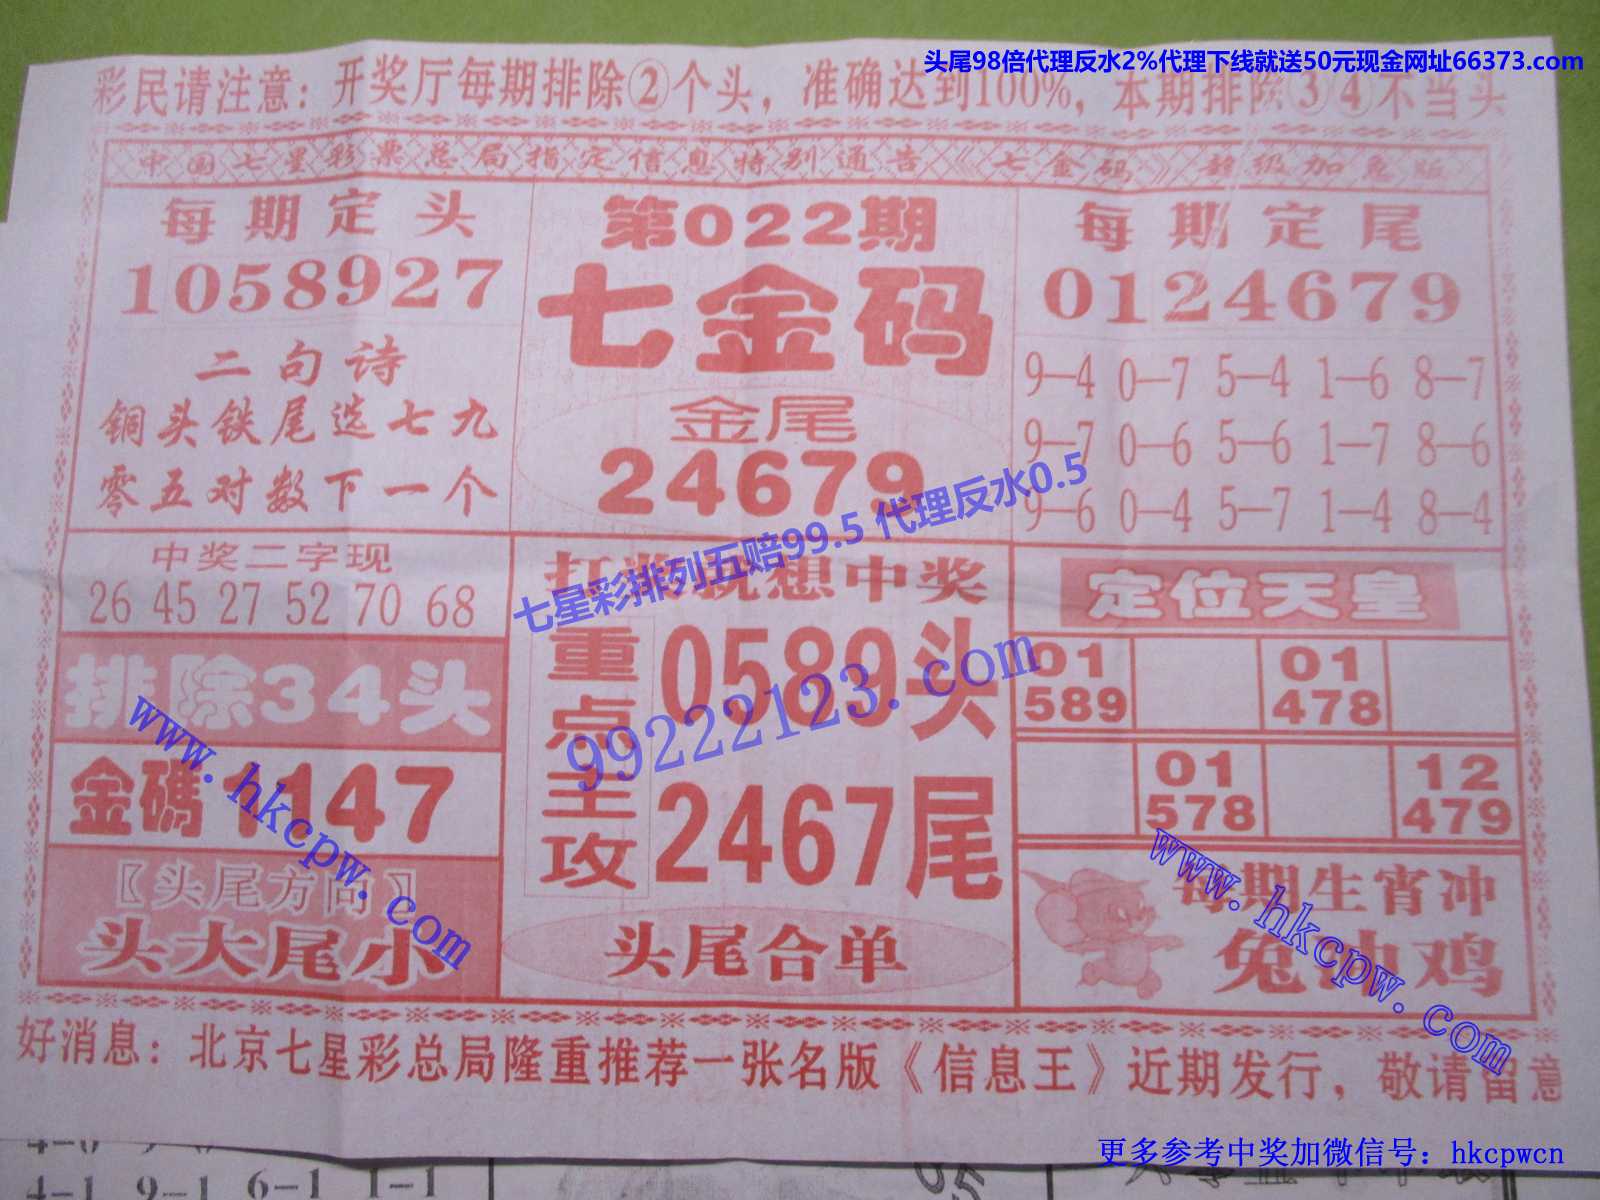 头尾98倍代理反水2%代理下线就送50元现金网址66373.com
彩民请注意：开奖厅每期排除②个头，准确达到100%，本期排除③④不当头
中国七星彩票总局指定信息特别通告《七金码》超级加急版
每期定头
1058927
二句诗
铜头铁尾选七九
零五对数下一个
第022期
七金码
金尾
24679
每期定尾
0124679
9—4 0—7 5—4 1—6 8—7
9—7 0—6 5—6 1—7 8—6
9—6 0—4 5—7 1—4 8—4
中奖二字现
26 45 27 52 70 68
排除34头
金碼1147
〖头尾方向〗
头大尾小
想中奖
重点主攻
0589头
2467尾
头尾合单
定位天皇
01 01
589 478
01 12
578 479
每期生宵冲
兔冲鸡
七星彩排列五赔99.5 代理反水0.5
99222123.com
www.hkcpw.com
www.hkcpw.com
好消息：北京七星彩总局隆重推荐一张名版《信息王》近期发行，敬请留意
更多参考中奖加微信号：hkcpwcn
4—1 9—1 6—1 1—1